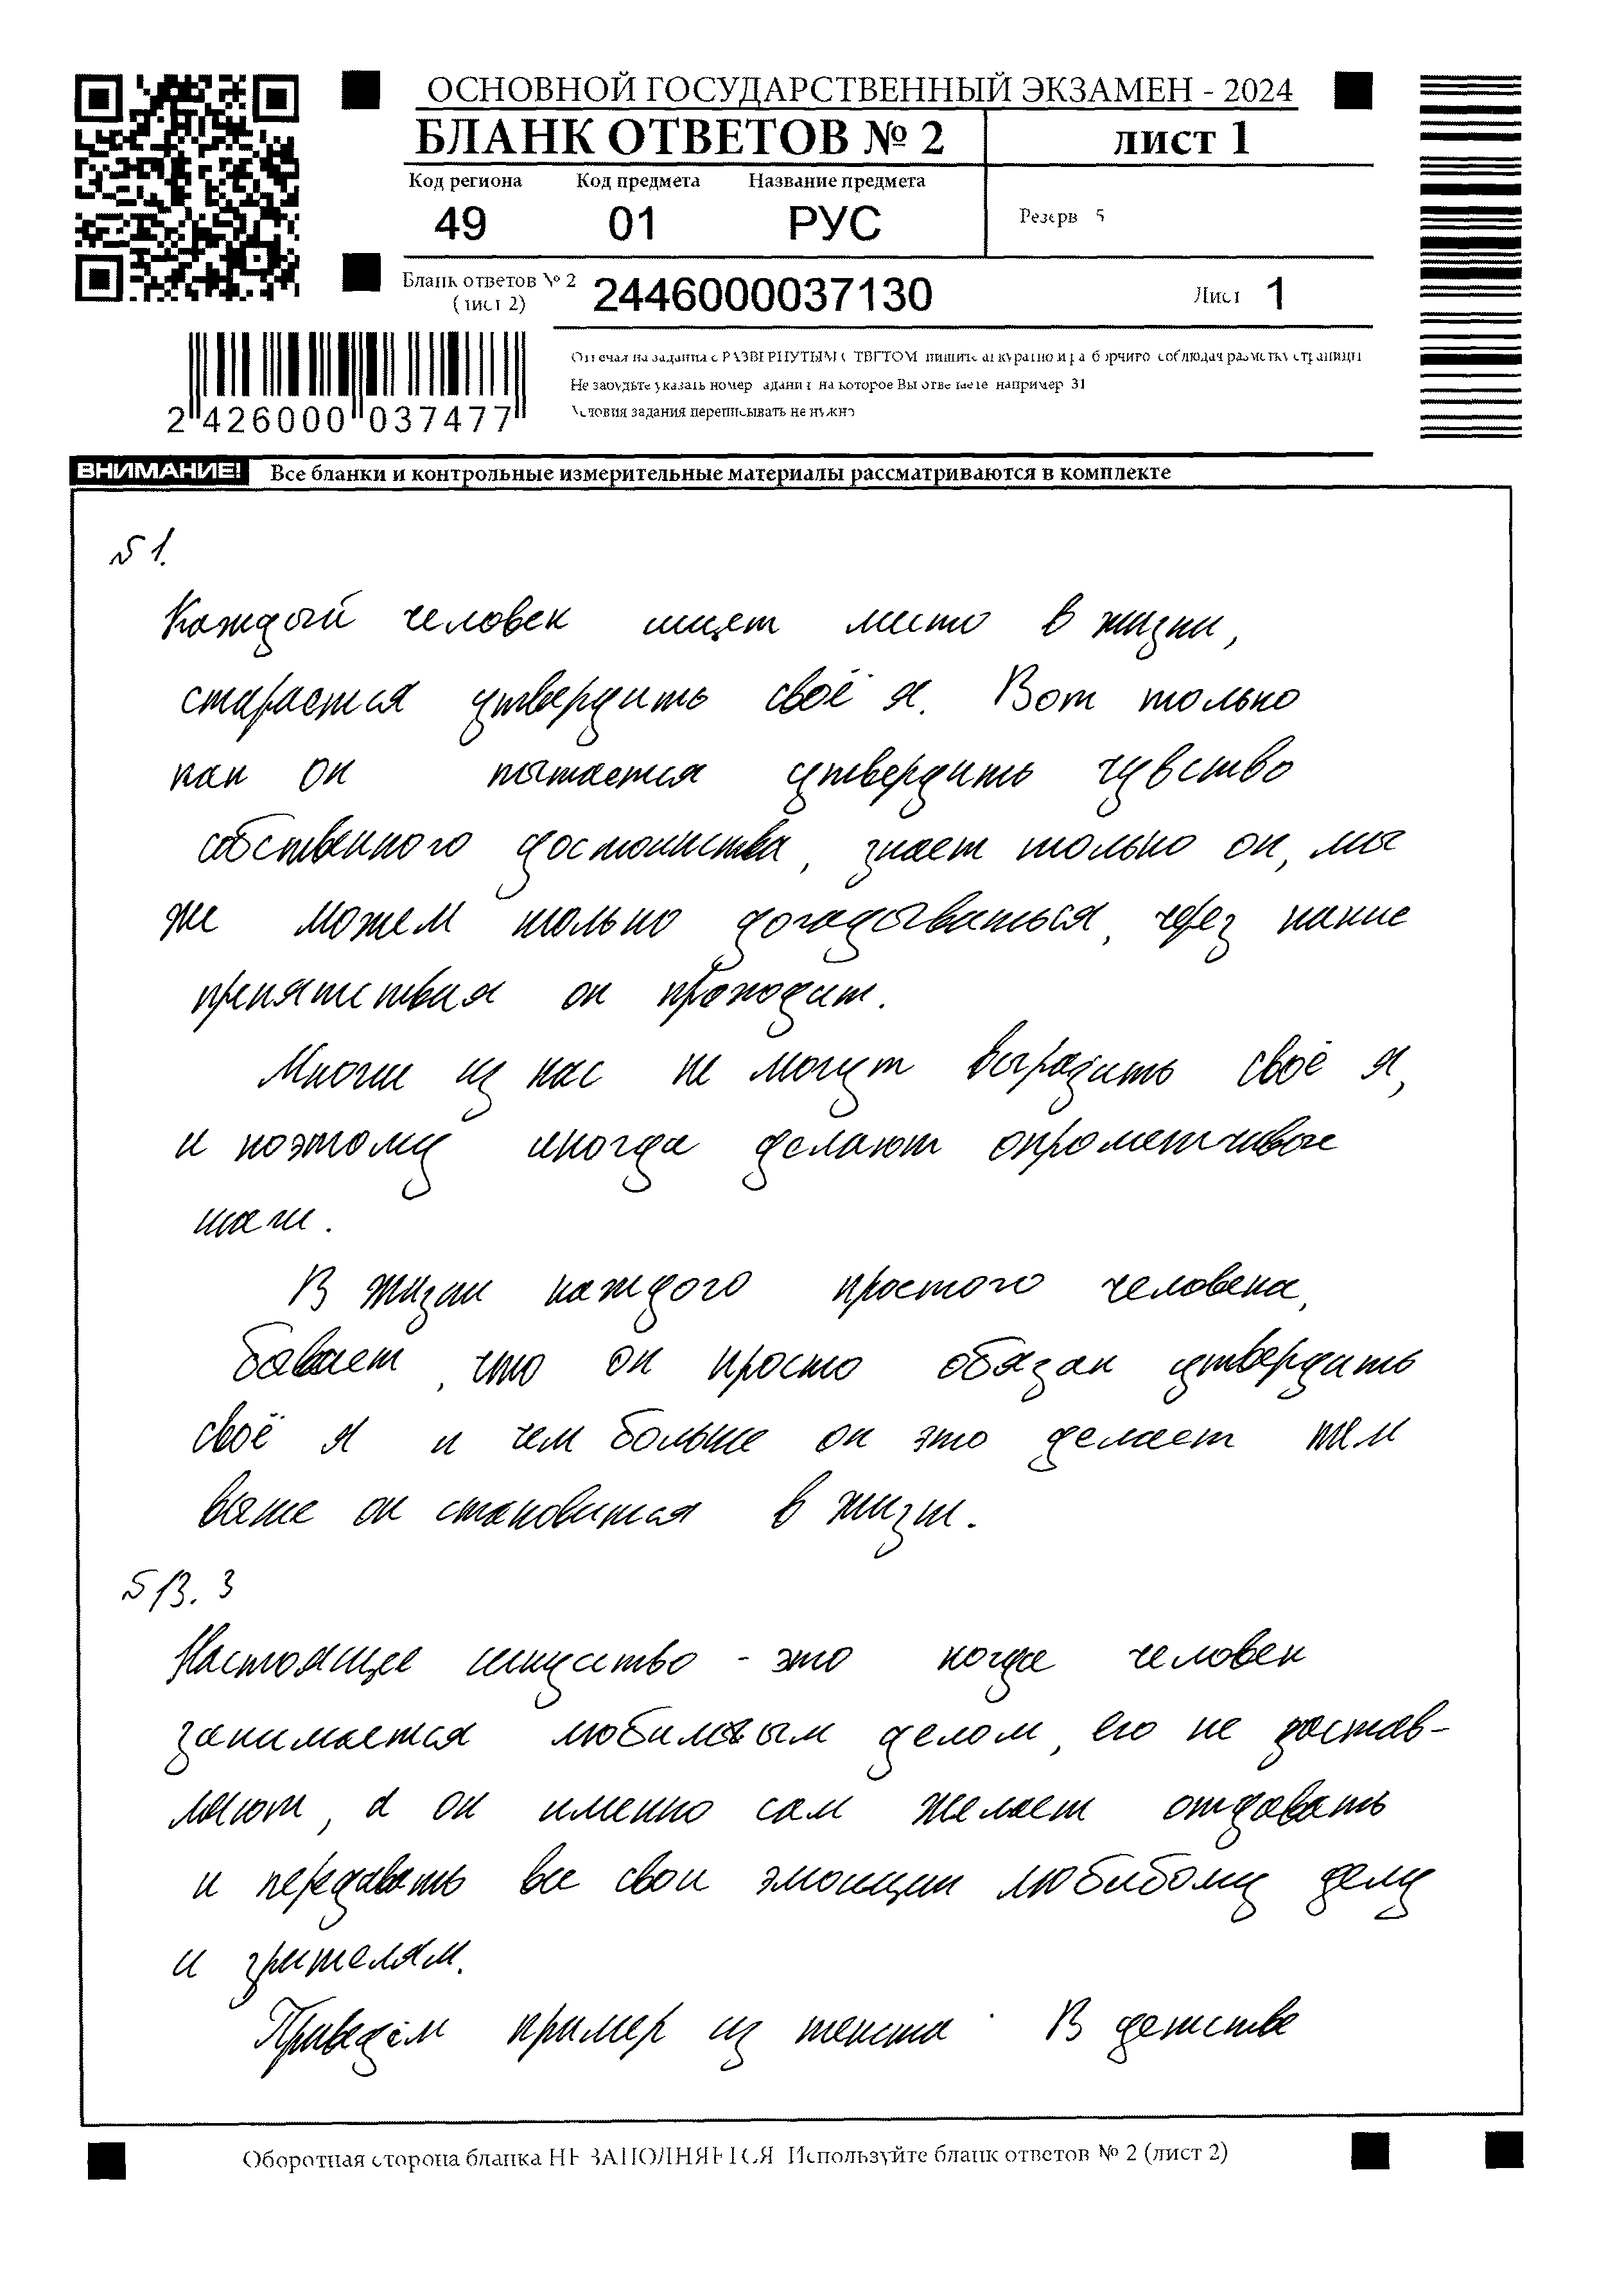 ОСНОВНОЙ ГОСУДАРСТВЕННЫЙ ЭКЗАМЕН - 2024
БЛАНК ОТВЕТОВ № 2
лист 1
Код региона Код предмета Название предмета
49 01 РУС
Резерв 5
Бланк ответов № 2
(лист 2)
2446000037130
Лист 1
Отвечая на задания с РАЗВЕРНУТЫМ ОТВЕТОМ пишите аккуратно и разборчиво соблюдая разметку страницы
Не забудьте указать номер задания на которое Вы отвечаете например 31
Условия задания переписывать не нужно
2 426000 037477
ВНИМАНИЕ! Все бланки и контрольные измерительные материалы рассматриваются в комплекте
№ 1.
Каждый человек ищет место в жизни,
старается утвердить своё я. Вот только
как он пытается утвердить чувство
собственного достоинства, знает только он, мы
же можем только догадываться, через какие
препятствия он проходит.
Многие из нас не могут выразить своё я,
и поэтому иногда делают опрометчивые
шаги.
В жизни каждого простого человека,
бавает, что он просто обязан утвердить
своё я и чем больше он это делает тем
выше он становится в жизни.
№ 13.3
Настоящее искуство - это когда человек
занимается любимым делом, его не застав-
ляют, а он именно сам желает отдавать
и передавать все свои эмоции любибому делу
и зрителям.
Приведём пример из текста. В детстве
Оборотная сторона бланка НЕ ЗАПОЛНЯЕТСЯ Используйте бланк ответов № 2 (лист 2)